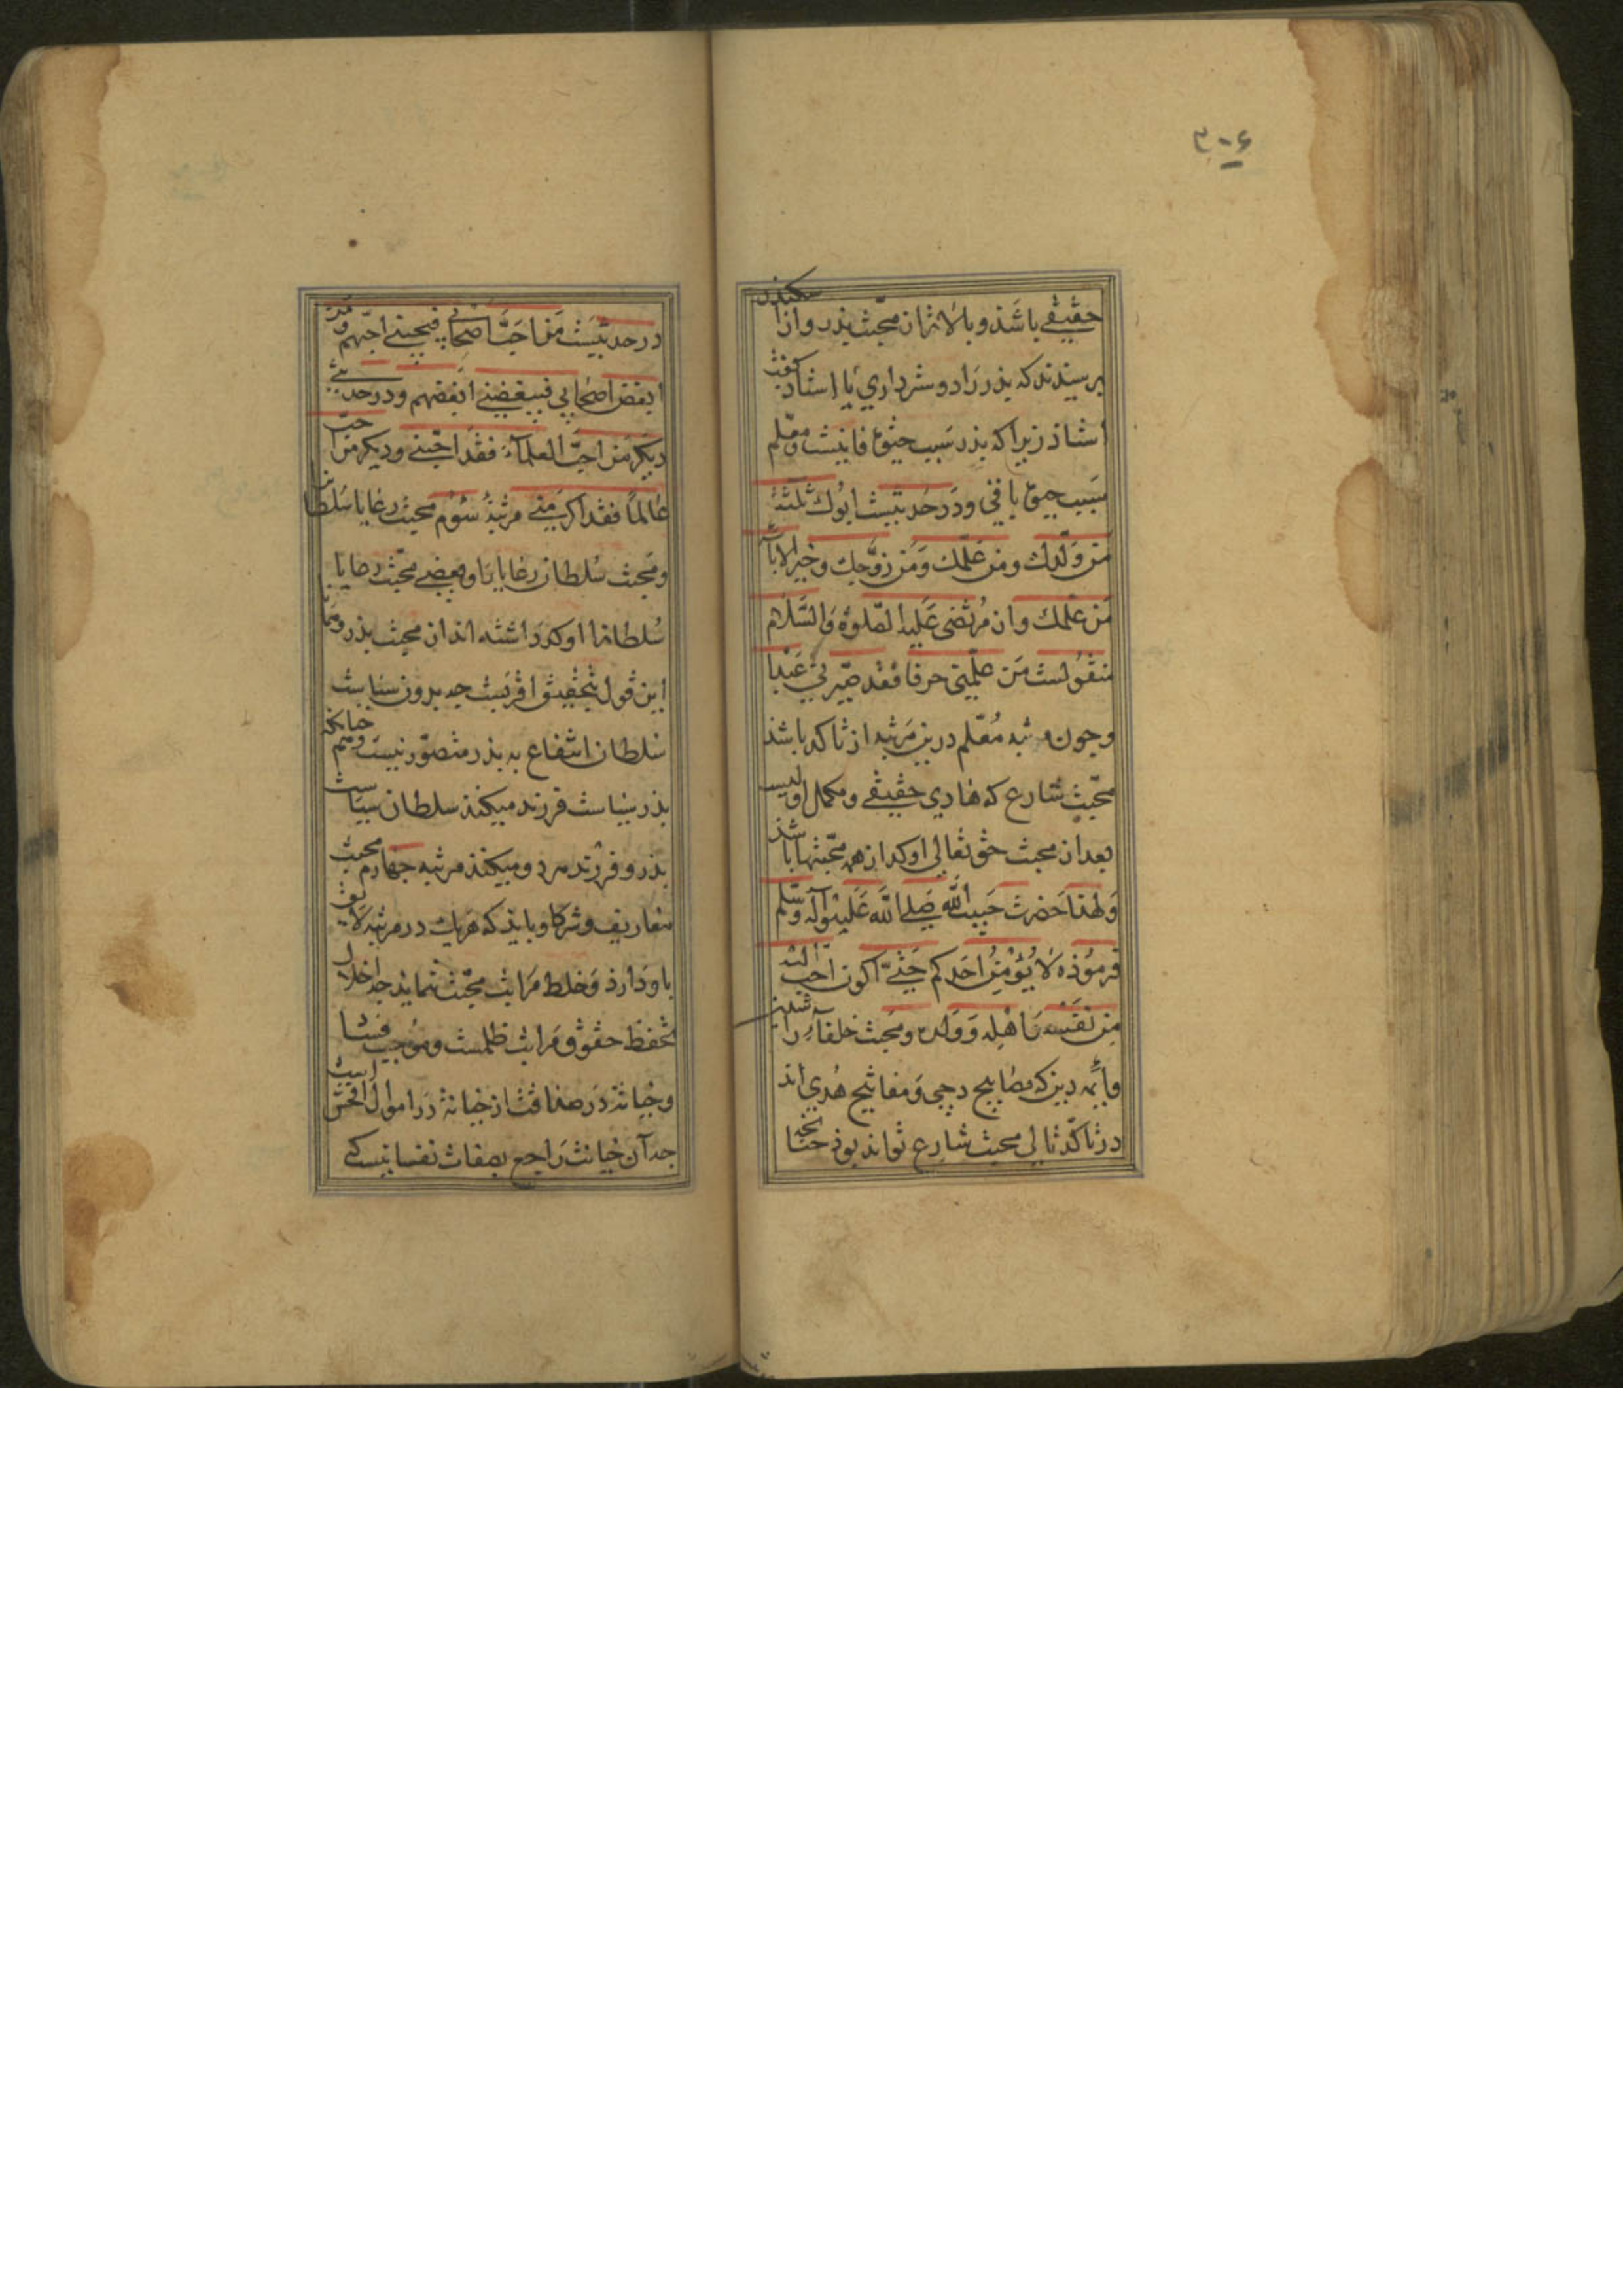 ۳۰۶
حقیقی باشذ و بالاتر از محبّت پذر و از سکندر
پرسیذند که پذر را دوستر داری یا استاذ گفت
استاذ زیرا که پذر سبب حیوة فانیست و معلّم
سبب حیوة باقی و در حدیثست ابوك ثلثة
من ولّدك و من علّمك و من زوّجك و خیر الابآء
من علّمك و از مرتضی علیه الصّلوة و السّلام
منقولست من علّمنی حرفا فقد صیّرنی عبدا
و چون مرتبه معلّم درین مرتبه از تاکد باشذ
محبّت شارع که هادی حقیقی و مکمل اولیست
بعد از محبت حق تعالی اوکد از همه محبّتها باشذ
و لهذا حضرت حبیب الله صلی الله علیه و آله و سلّم
فرموذه لا یؤمن احدکم حتّی اکون احبّ الیه
من نفسه و اهله و ولده و محبت خلفآء راشدین
و ائمه دین که مصابیح دجی و مفاتیح هدی اند
در تاکّد تالی محبت شارع تواند بوذ چنانچه
در حدیثست من احبّ اصحابی فبحبنی احبّهم و من
ابغض اصحابی فببغضنی ابغضهم و در حدیثی
دیگر من احبّ العلمآء فقد احبّنی و دیگر من احبّ
عالماً فقد اکرمنی مرتبهٔ سوّم محبت رعایا سلطان را
و محبت سلطان رعایا را و بعضی محبّت رعایا با
سلطانرا اوکد داشته اند از محبت پذر و
این قول بتحقیق اقربست چه بدون سیاست
سلطان انتفاع به پذر متصوّر نیست و هم چنانکه
پذر سیاست فرزند میکنذ سلطان سیاست
پذر و فرزند هر دو میکنذ مرتبه چهارم محبت
معاریف و شرکا و بایذ که هریك در مرتبه لایق
باو دارذ و خلط مراتب محبّت ننمایذ چه اخلال
بحفظ حقوق مراتب ظلمست و موجب فسـٰـاد
و خیانة در صداقت از خیانة در اموال افحش است
چه آن خیانت راجع بصفات نفسانیست که